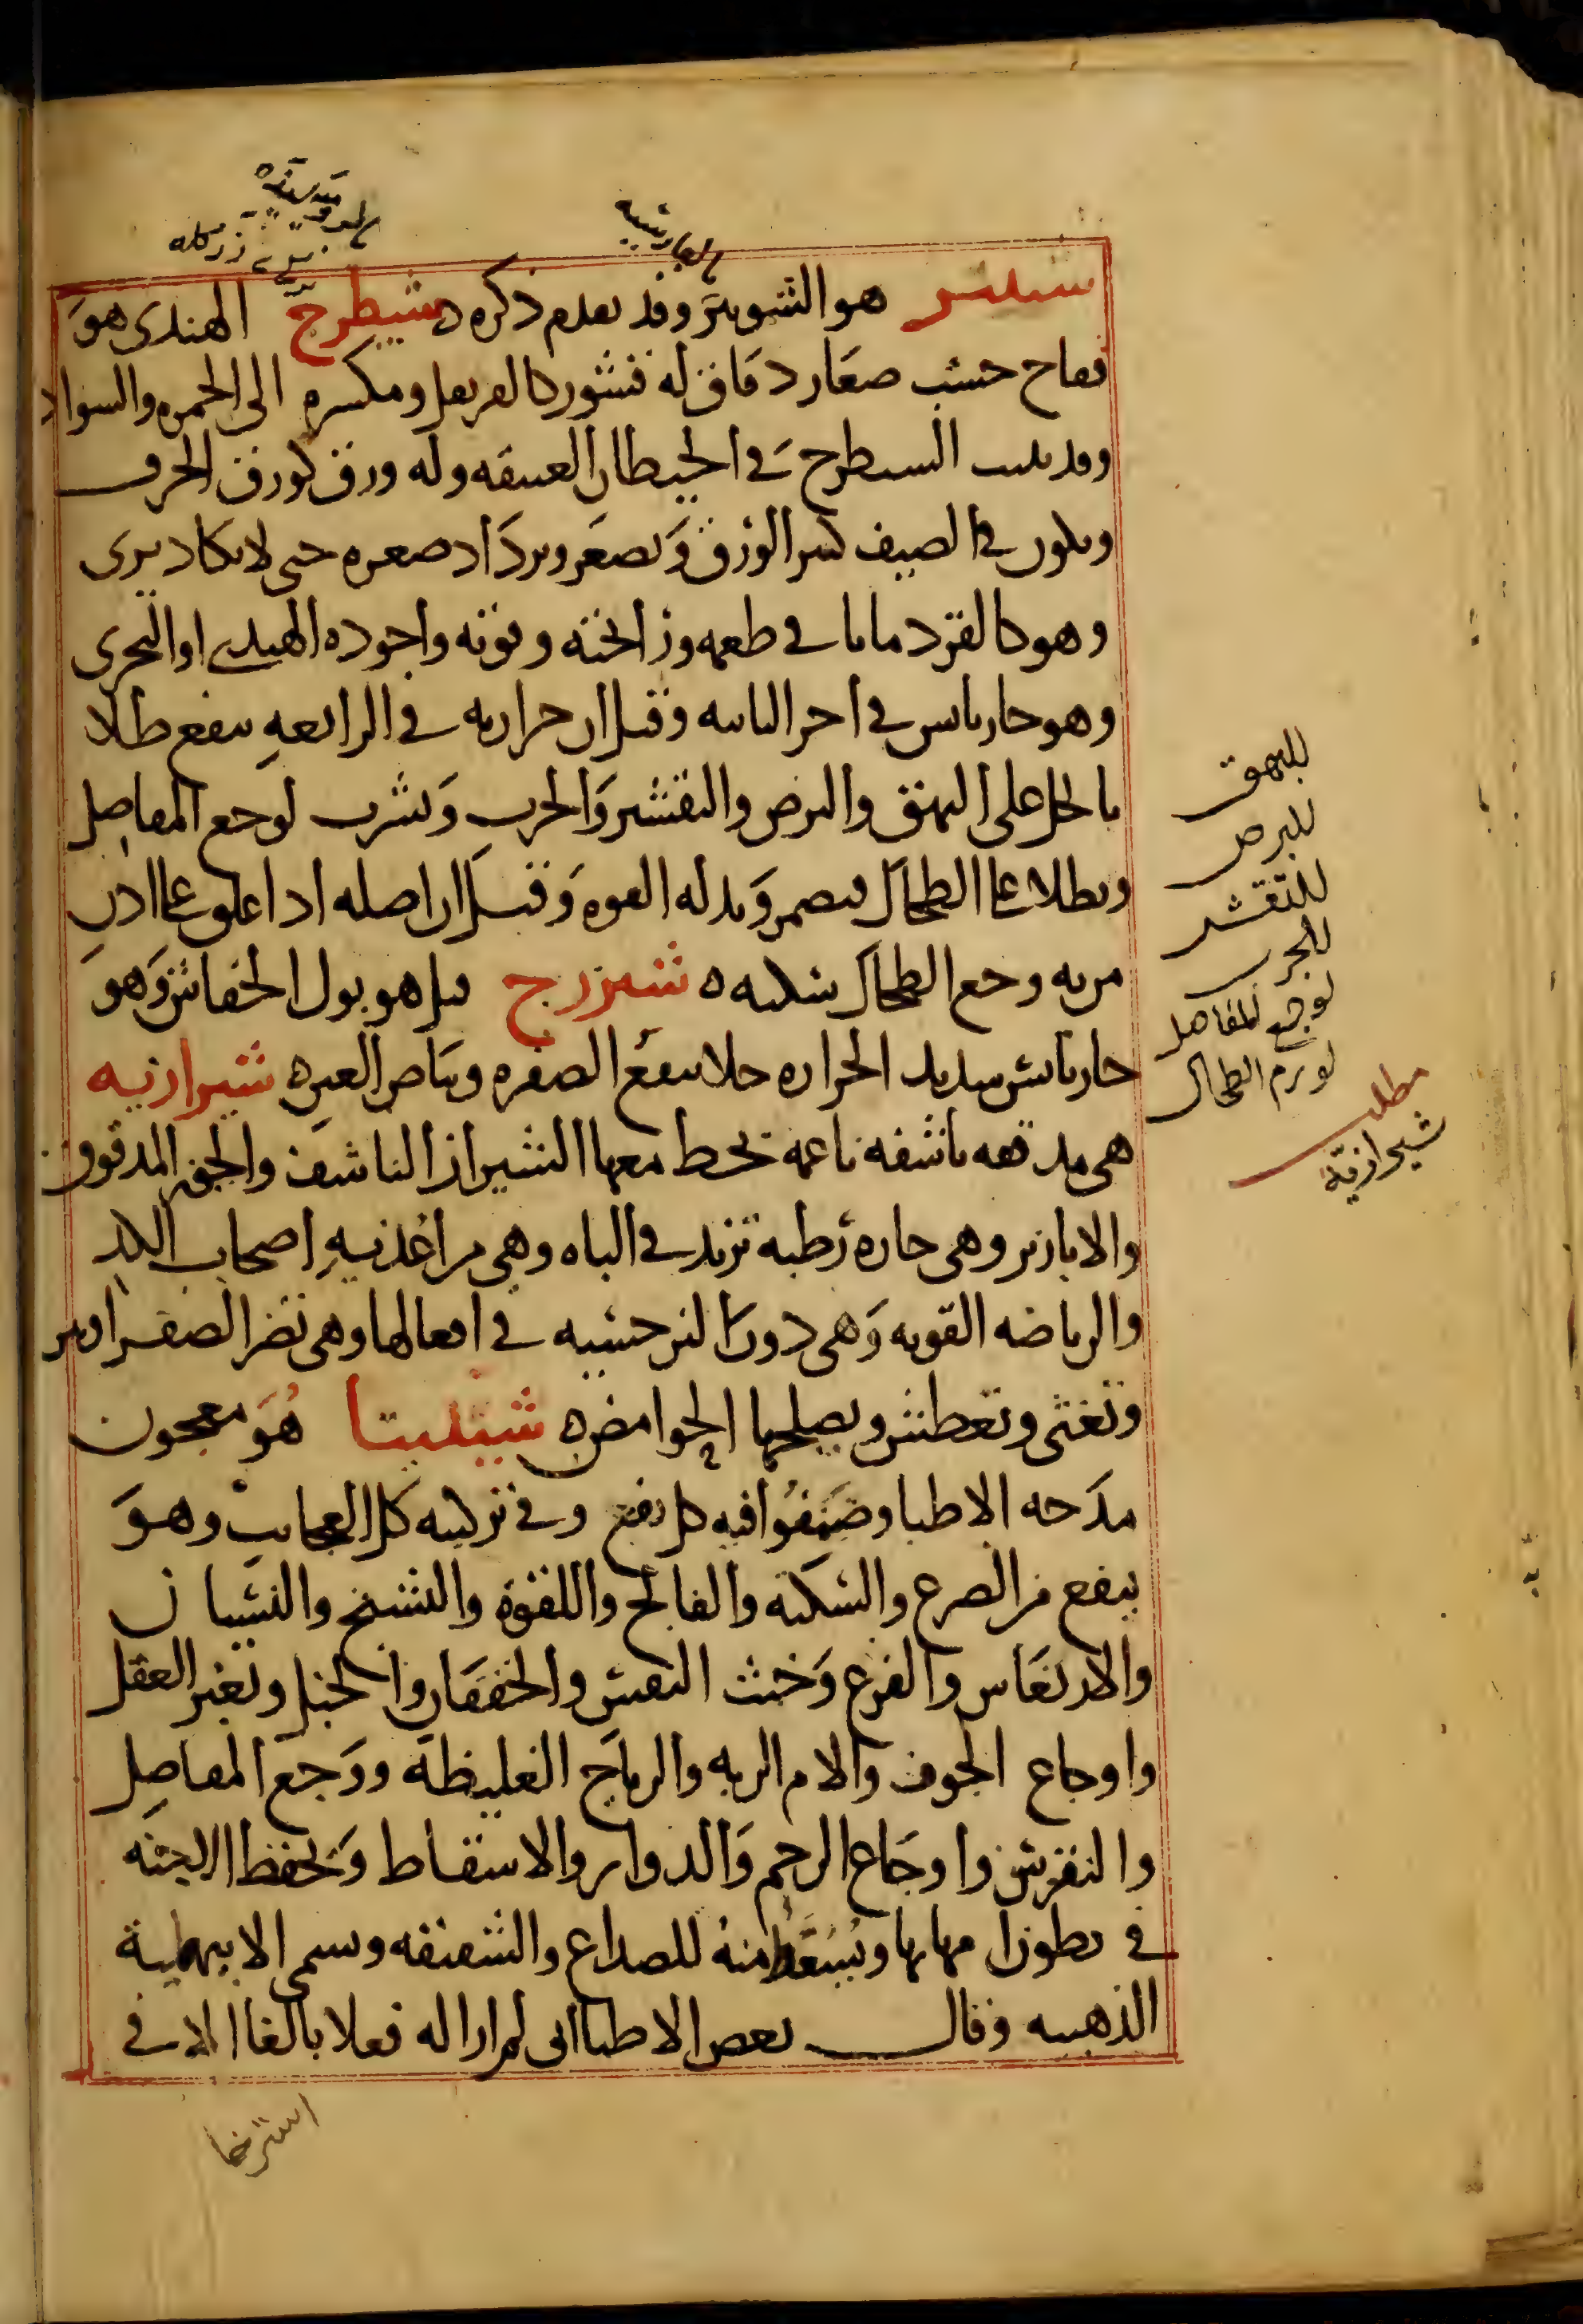 هو الشونيز وقد تقدم ذكره ه شيطرج الهندى هو
خشب صغار دقاق له قشور كالقرنفل ومكسره الى الحمره والسواد
وقد ينبت الشيطرج فى الحيطان العتيقه وله ورق كورق الحرف
ويكون فى الصيف كثير الورق ويصغر ويزداد صغره حتى لا يكاد يرى
وهو كالقردمانا فى طعمه ورائحته وقوته واجوده الهندى او البحرى
وهو حار يابس فى اخر الثانيه وقيل ان حرارته فى الرابعه ينفع طلا
بالخل على البهق والبرص والتقشر والجرب ويشرب لوجع المفاصل
ويطلا على الطحال فيضمر وبدله الفوه وقيل ان اصله اذا علق على اذن
من به وجع الطحال سكنه ه شيزرج قيل هو بول الخفاش وهو
حار يابس شديد الحراره جلا ينفع الظفره وبياض العين ه شيرازيه
هى مدققه ناشفه ناعمه يخلط معها الشيراز الناشف والجبن المدقوق
والابازير وهى حاره رطبه تزيد فى الباه وهى من اغذيه اصحاب الكد
والرياضه القويه وهى دون النرجسيه فى افعالها وهى تضر الصفراويين
وتغثى وتعطش ويصلحها الحوامض ه شيلثا هو معجون
مدحه الاطبا وصنفوا فيه كل نفع وفى تركيبه كل العجايب وهو
ينفع من الصرع والسكته والفالج واللقوة والتشنج والنسيان
والارتعاش والفزع وخبث النفس والخفقان والخبل وتغير العقل
واوجاع الجوف والام الريه والرياح الغليظه ووجع المفاصل
والنقرس واوجاع الرحم والدوار والاسقاط ويحفظ الاجنه
فى بطون امهاتها ويسعط منه للصداع والشقيقه وسمى
الذهبيه وقال بعض الاطبا انى لم ار له فعلا بالغا الا فى
استرخا
للبهق
للبرص
للتقشر
للجرب
لوجع المفاصل
لورم الطحال
مطلب
شيرازية